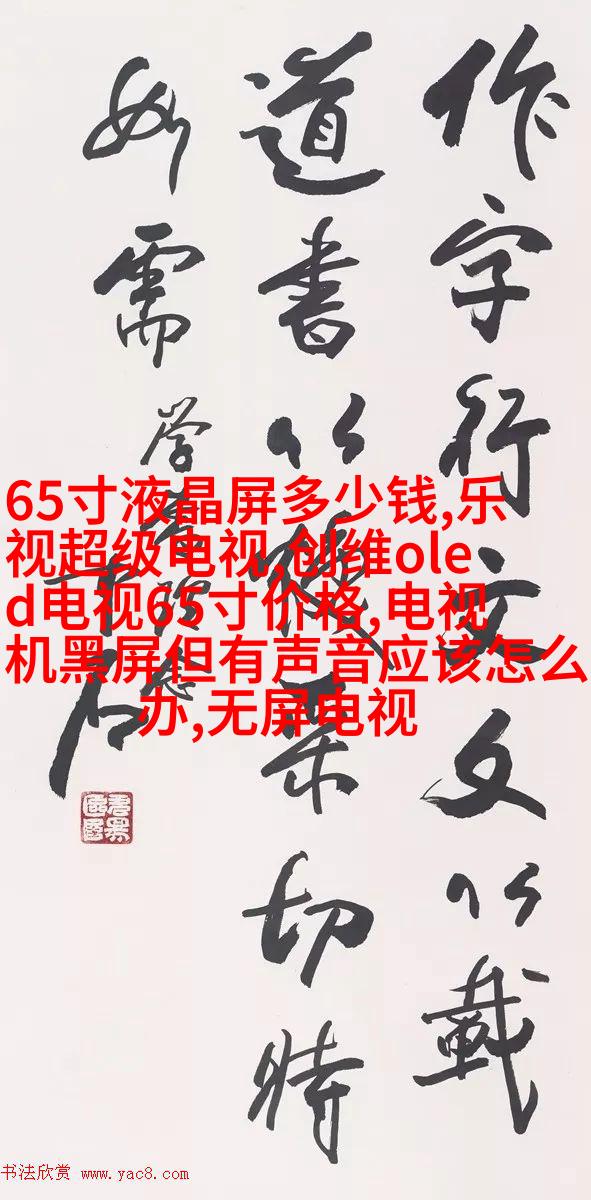 作字行文文以載
道書以煥采切時
如需
65寸液晶屏多少钱,乐
视超级电视,创维ole
d电视65寸价格,电视
机黑屏但有声音应该怎么
办,无屏电视
书法欣赏 www.yac8.com